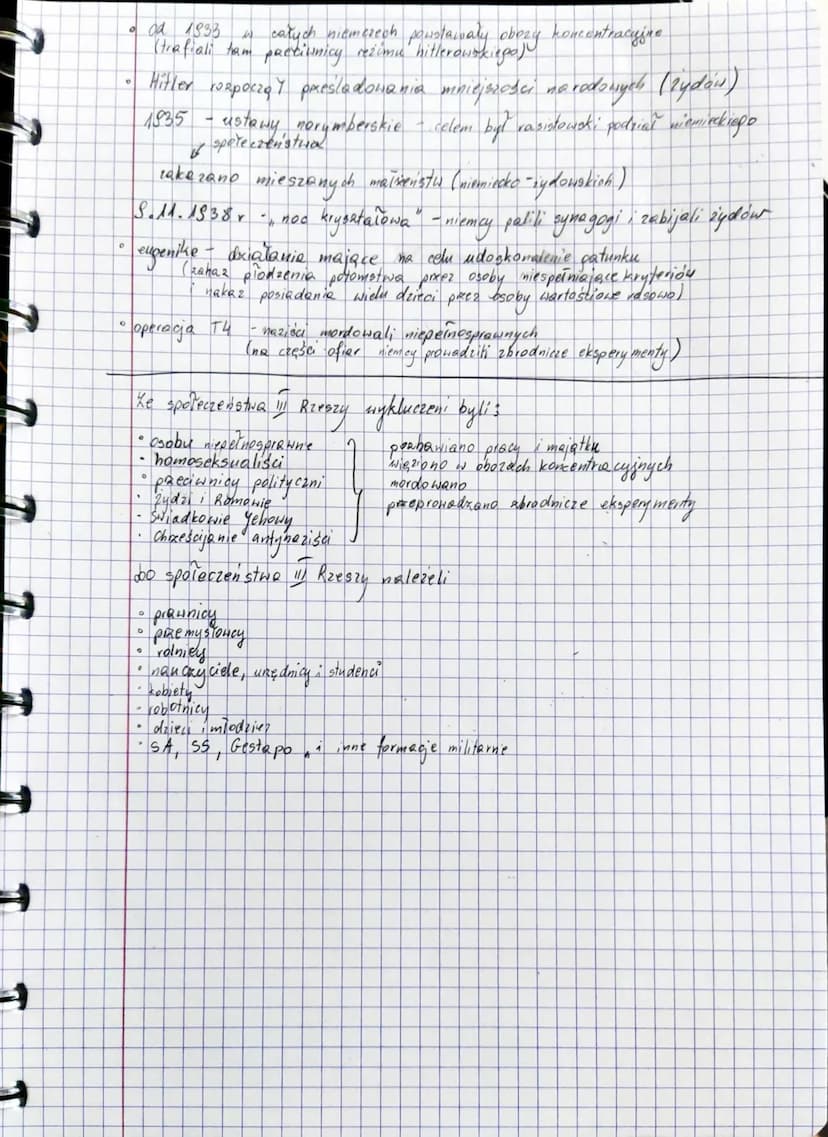 • od 1933 w całych niemczech powstawały obozy koncentracyjne
(trafiali tam przeciwnicy reżimu hitlerowskiego)
• Hitler rozpoczął prześladowania mniejszości narodowych (żydów)
1935 - ustawy norymberskie - celem był rasistowski podział niemieckiego
↙ społeczeństwa
zakazano mieszanych małżeństw (niemiecko-żydowskich)
9.11.1938 r - „noc kryształowa" - niemcy palili synagogi i zabijali żydów
• eugenika - działania mające na celu udoskonalenie gatunku
(zakaz płodzenia potomstwa przez osoby niespełniające kryteriów
i nakaz posiadania wielu dzieci przez osoby wartościowe rasowo)
• operacja T4 - naziści mordowali niepełnosprawnych
(na części ofiar niemcy prowadzili zbrodnicze eksperymenty)
Ze społeczeństwa III Rzeszy wykluczeni byli:
• osoby niepełnosprawne
• homoseksualiści
• przeciwnicy polityczni
• żydzi i Romowie
• Świadkowie Jehowy
• chrześcijanie antynaziści
pozbawiano pracy i majątku
więziono w obozach koncentracyjnych
mordowano
przeprowadzano zbrodnicze eksperymenty
Do społeczeństwa III Rzeszy należeli
• prawnicy
• przemysłowcy
• rolnicy
• nauczyciele, urzędnicy i studenci
• kobiety
• robotnicy
• dzieci i młodzież
• SA, SS, Gestapo i inne formacje militarne